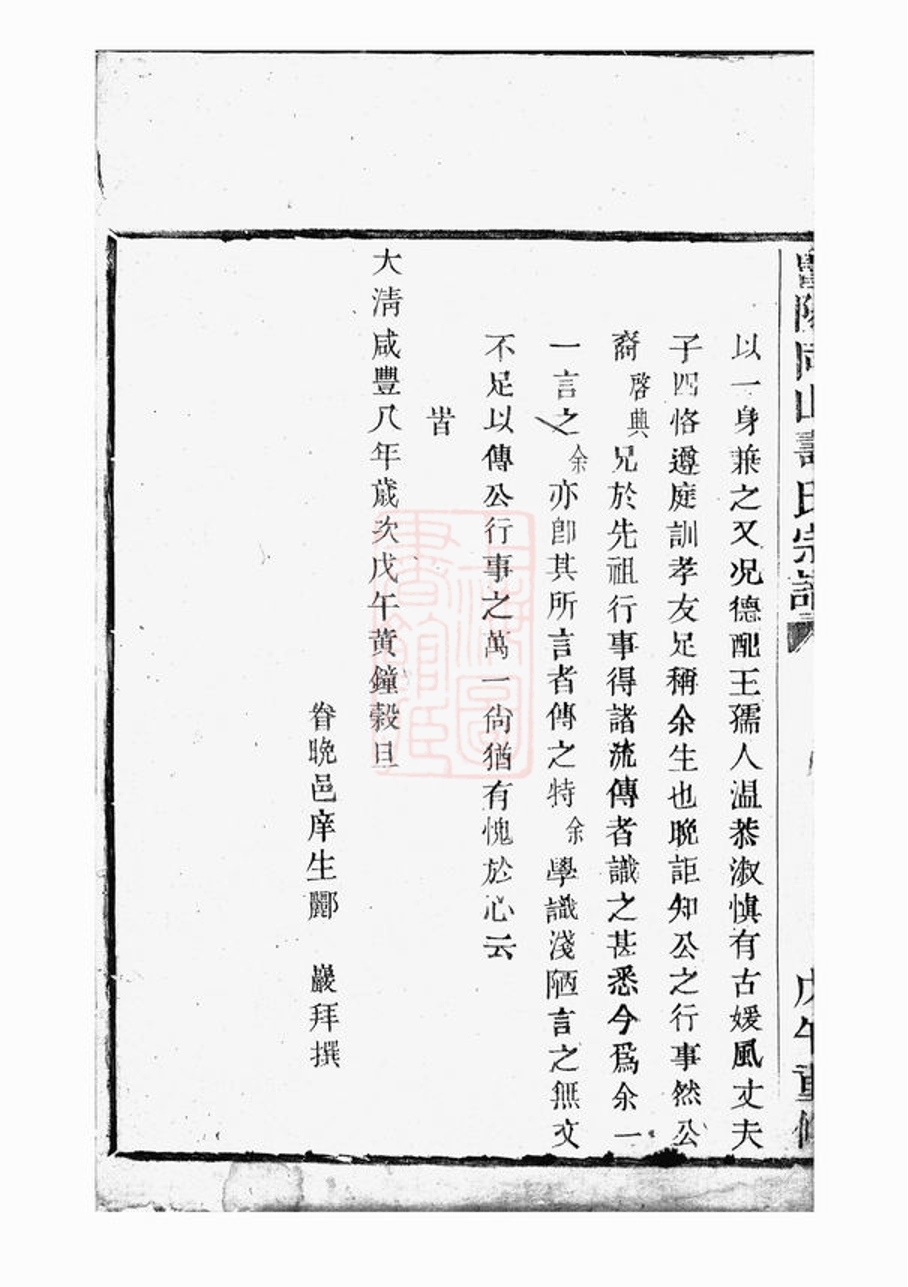 豐陽同山壽氏宗譜 戊午重修
以一身兼之又况德配王孺人温恭淑慎有古媛風丈夫
子四恪遵庭訓孝友足稱余生也晚詎知公之行事然公
裔啓典兄於先祖行事得諸流傳者識之甚悉今爲余一
一言之余亦卽其所言者傳之特余學識淺陋言之無文
不足以傳公行事之萬一尙猶有愧於心云
旹
大淸咸豐八年歲次戊午黃鐘穀旦
眷晚邑庠生酈 巖拜撰
上海圖書館藏